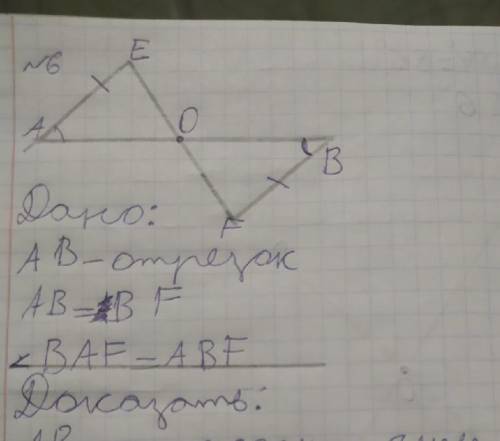 №6
E
A
O
B
F
Дано:
AB – отрезок
AB = BF
∠BAF = ABF
Доказать: